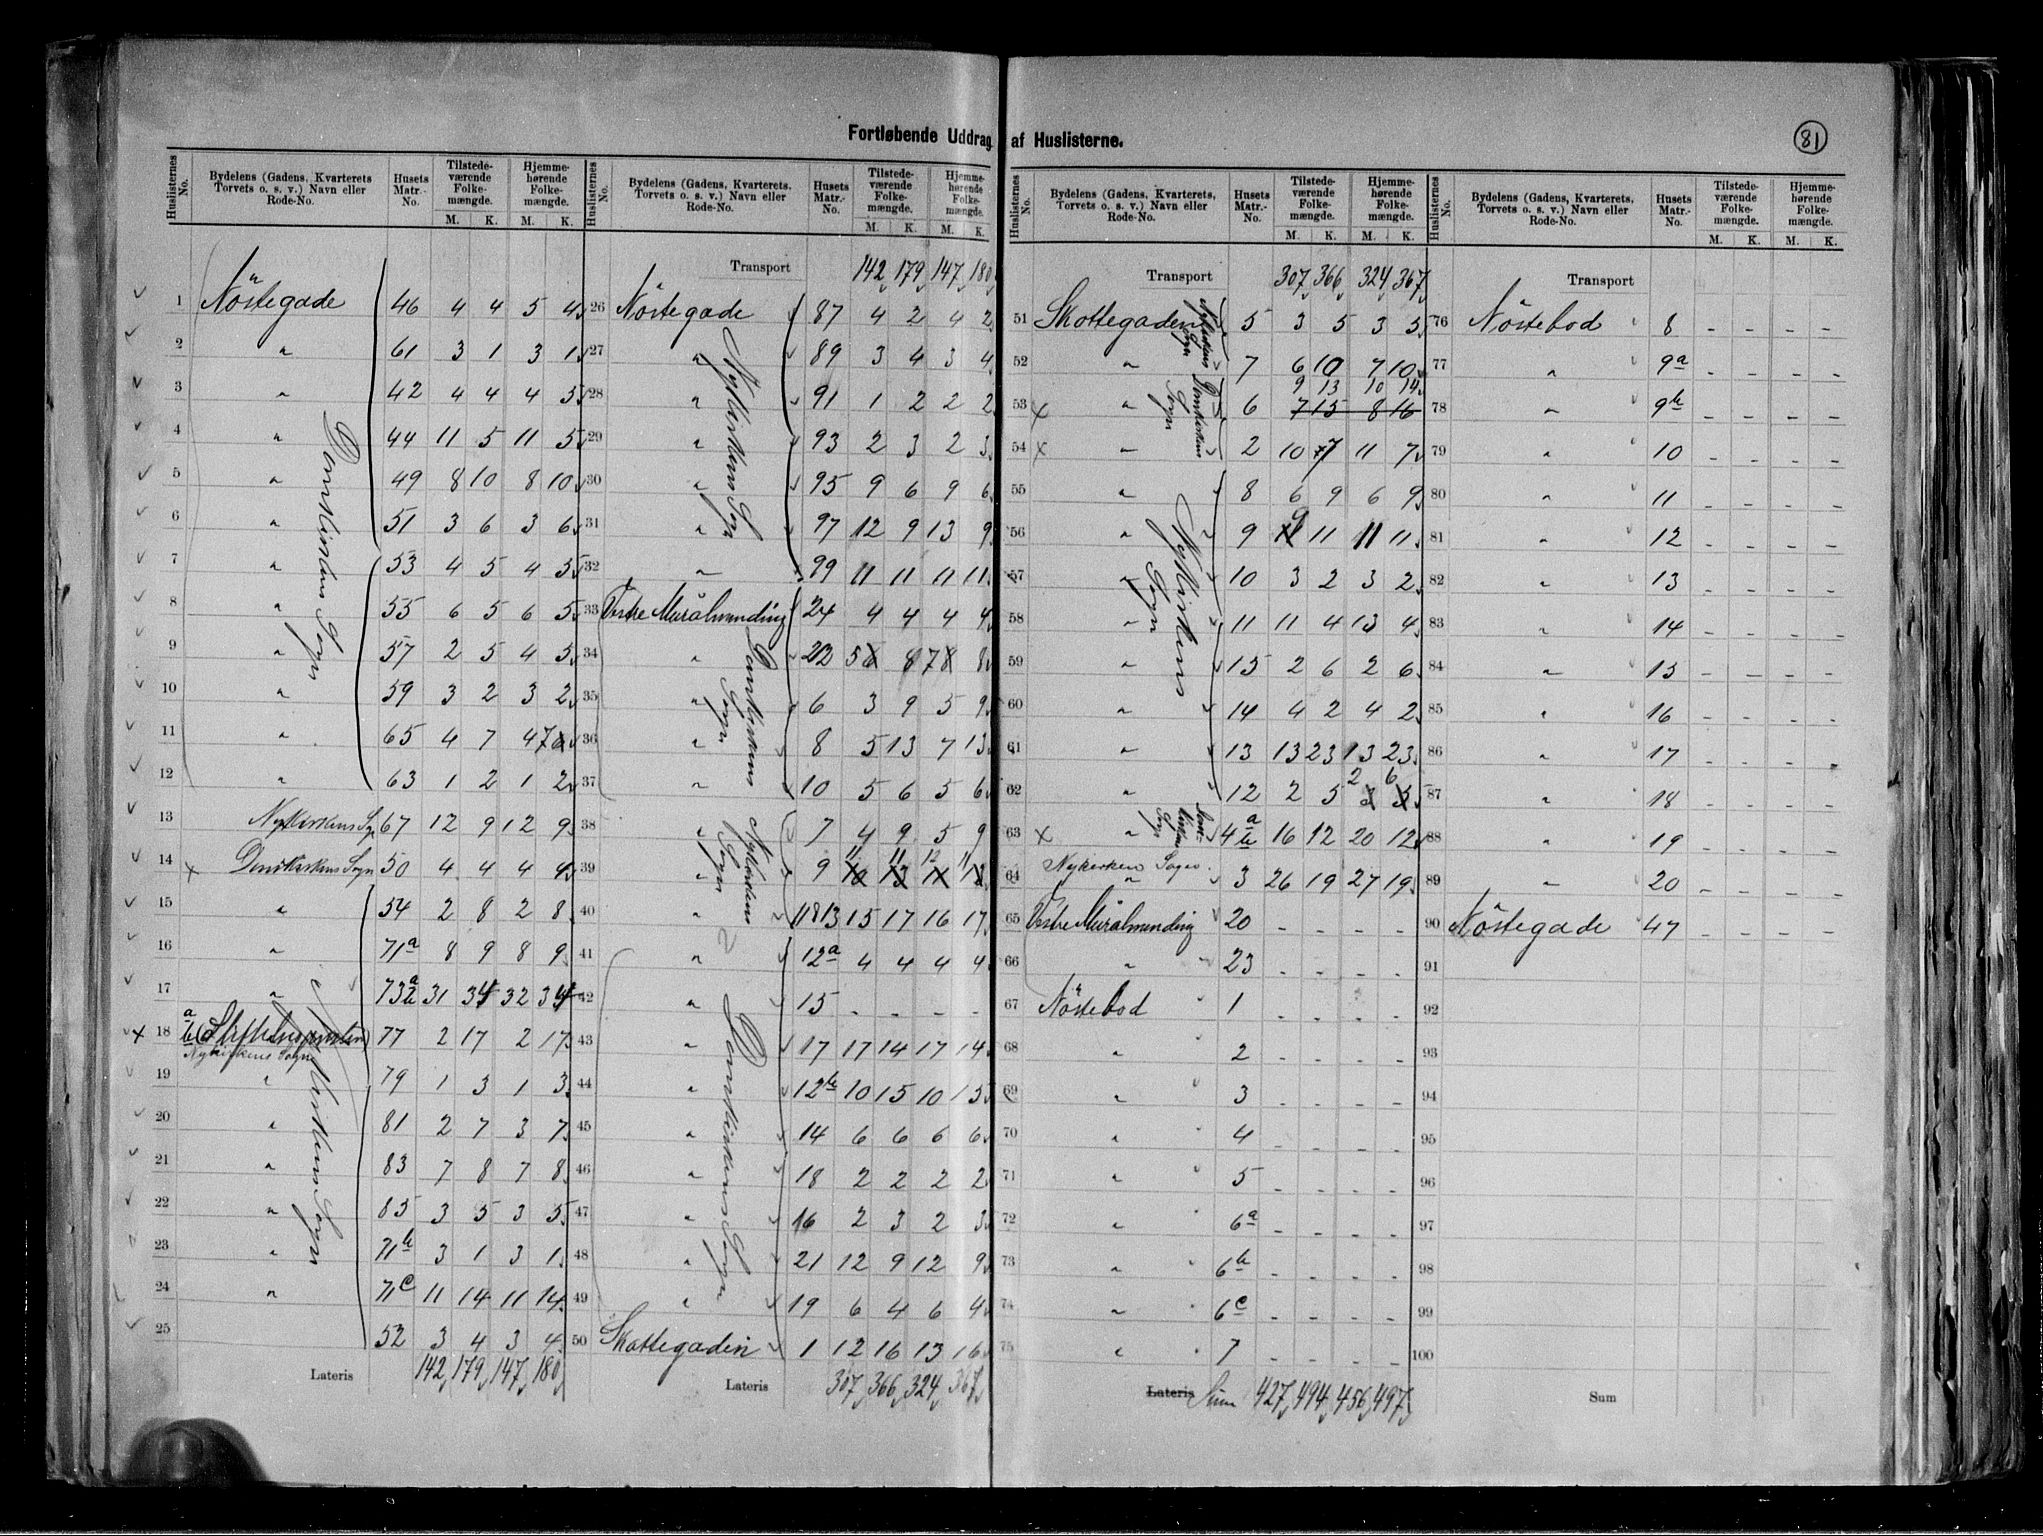 Fortløbende Uddrag af Huslisterne.
81
Huslisternes No. | Bydelens (Gadens, Kvarterets, Torvets o. s. v.) Navn eller Rode-No. | Husets Matr.-No. | Tilstedeværende Folkemængde. M. K. | Hjemmehørende Folkemængde. M. K.
1 Nöstegade 46 4 4 5 4
2 " 61 3 1 3 1
3 " 42 4 4 4 5
4 " 44 11 5 11 5
5 " 49 8 10 8 10
6 " 51 3 6 3 6
7 " 53 4 5 4 5
8 " 55 6 5 6 5
9 " 57 2 5 4 5
10 " 59 3 2 3 2
11 " 65 4 7 4 7
12 " 63 1 2 1 2
Domkirkens Sogn
13 Nykirkens Sogn 67 12 9 12 9
14 Domkirkens Sogn 50 4 4 4 4
15 " 54 2 8 2 8
16 " 71a 8 9 8 9
17 " 73 a b 31 34 32 34
18 77 2 17 2 17
Nykirkens Sogn
19 " 79 1 3 1 3
20 " 81 2 7 3 7
21 " 83 7 8 7 8
22 " 85 3 5 3 5
23 " 71b 3 1 3 1
24 " 71c 11 14 11 14
25 52 3 4 3 4
Lateris 142 179 147 180
Transport 142 179 147 180
26 Nöstegade 87 4 2 4 2
27 " 89 3 4 3 4
28 " 91 1 2 2 2
29 " 93 2 3 2 3
30 " 95 9 6 9 6
31 " 97 12 9 13 9
32 " 99 11 11 11 11
Nykirkens Sogn
33 Vestre Muralmending 24 4 4 4 4
34 " 22 5 8 7 8
35 " 6 3 9 5 9
36 " 8 5 13 7 13
37 " 10 5 6 5 6
Domkirkens Sogn
38 " 7 4 9 5 9
39 " 9 11 11 12 11
40 " 11 & 13 15 17 16 17
Nykirkens Sogn
41 " 12a 4 4 4 4
42 " 15 - - - -
43 " 17 17 14 17 14
44 " 12b 10 15 10 15
45 " 14 6 6 6 6
46 " 18 2 2 2 2
47 " 16 2 3 2 3
48 " 21 12 9 12 9
49 " 19 6 4 6 4
Domkirkens Sogn
50 Skottegaden 1 12 16 13 16
Lateris 307 366 324 367
Transport 307 366 324 367
51 Skottegaden 5 3 5 3 5
52 " 7 6 10 7 10
Nykirkens Sogn
9 13 10 14
53 " 6 7 15 8 16
54 " 2 10 7 11 7
Domkirkens Sogn
55 " 8 6 9 6 9
56 " 9 9 11 11 11
57 " 10 3 2 3 2
58 " 11 11 4 13 4
59 " 15 2 6 2 6
60 " 14 4 2 4 2
61 " 13 13 23 13 23
2 6
62 " 12 2 5 3 5
Nykirkens Sogn
63 " 4 a b 16 12 20 12
Nykirkens Sogn
64 " 3 26 19 27 19
65 Vestre Muralmending 20 - - - -
66 " 23 - - - -
67 Nöstebod 1 - - - -
68 " 2 - - - -
69 " 3 - - - -
70 " 4 - - - -
71 " 5 - - - -
72 " 6a - - - -
73 " 6b - - - -
74 " 6c - - - -
75 " 7 - - - -
Lateris Sum 427 494 456 497
Transport
76 Nöstebod 8 - - - -
77 " 9a - - - -
78 " 9b - - - -
79 " 10 - - - -
80 " 11 - - - -
81 " 12 - - - -
82 " 13 - - - -
83 " 14 - - - -
84 " 15 - - - -
85 " 16 - - - -
86 " 17 - - - -
87 " 18 - - - -
88 " 19 - - - -
89 " 20 - - - -
90 Nöstegade 47 - - - -
91
92
93
94
95
96
97
98
99
100
Sum